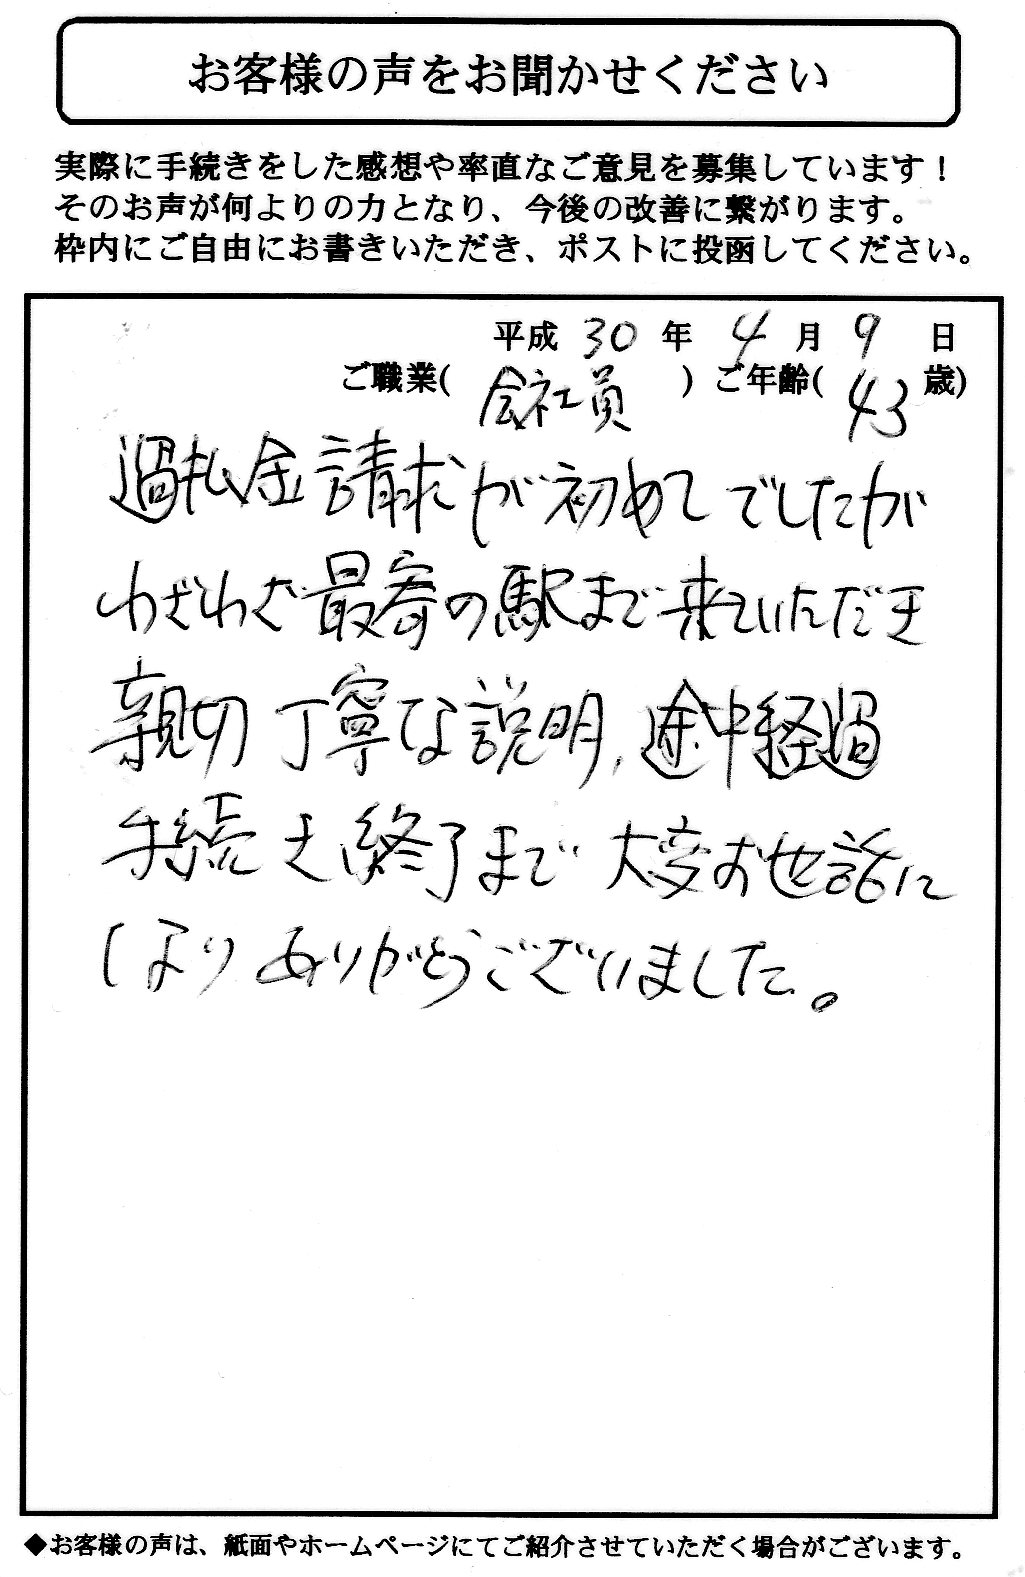 お客様の声をお聞かせください
実際に手続きをした感想や率直なご意見を募集しています！
そのお声が何よりの力となり、今後の改善に繋がります。
枠内にご自由にお書きいただき、ポストに投函してください。
平成 30 年 4 月 9 日
ご職業( 会社員 ) ご年齢( 43 歳)
過払金請求が初めてでしたが
わざわざ最寄の駅まで来ていただき
親切丁寧な説明、途中経過
手続き終了まで大変お世話に
なりありがとうございました。
◆お客様の声は、紙面やホームページにてご紹介させていただく場合がございます。